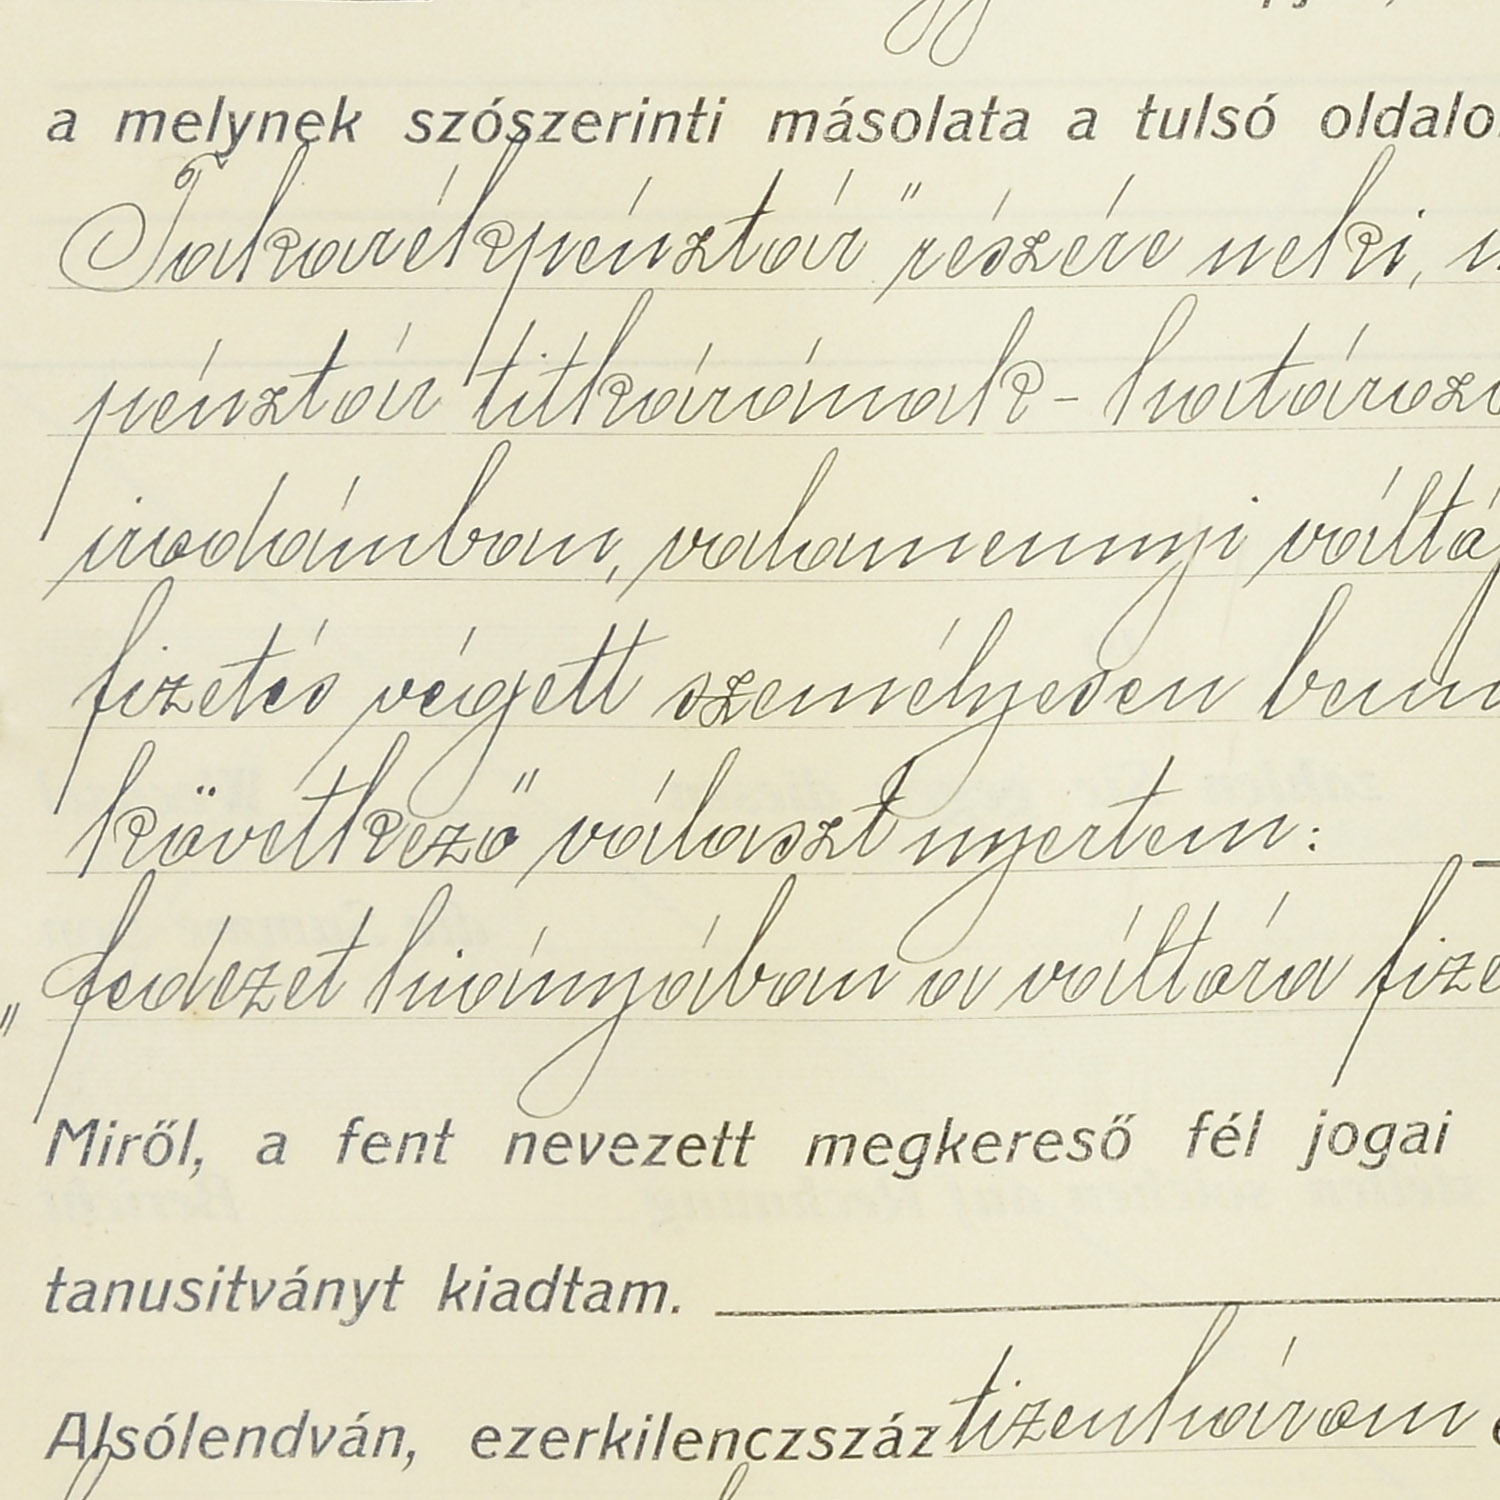 a melynek szószerinti másolata a tulsó
Takarékpénztár" részére neki,
pénztár titkárának - határozo
irodámban, valamennyi váltó
fizetés végett személyesen
következő választ nyertem:
„fedezet hiányában a váltóra fize
Miről, a fent nevezett megkereső fél jogai
tanusitványt kiadtam.
Alsólendván, ezerkilenczszáz tizenhárom